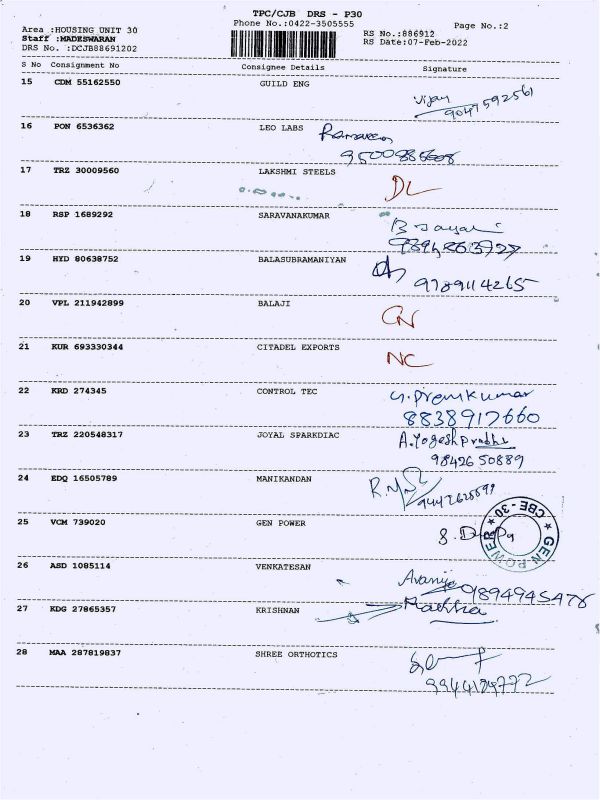 TPC/CJB DRS - P30
Phone No.:0422-3505555
Page No.:2
Area :HOUSING UNIT 30
Staff :MADESWARAN
DRS No. :DCJB88691202
RS No.:886912
RS Date:07-Feb-2022
S No Consignment No Consignee Details Signature
15 CDM 55162550 GUILD ENG
Vijay
16 PON 6536362 LEO LABS
17 TRZ 30009560 LAKSHMI STEELS
DL
18 RSP 1689292 SARAVANAKUMAR
19 HYD 80638752 BALASUBRAMANIYAN
9789114265
20 VPL 211942899 BALAJI
CN
21 KUR 693330344 CITADEL EXPORTS
NC
22 KRD 274345 CONTROL TEC
G.Premkumar
8838917660
23 TRZ 220548317 JOYAL SPARKDIAC
A.Yogesh Prabhu
9842650889
24 EDQ 16505789 MANIKANDAN
25 VCM 739020 GEN POWER
GEN POWER ★ CBE-30 ★
26 ASD 1085114 VENKATESAN
9894945478
27 KDG 27865357 KRISHNAN
28 MAA 287819837 SHREE ORTHOTICS